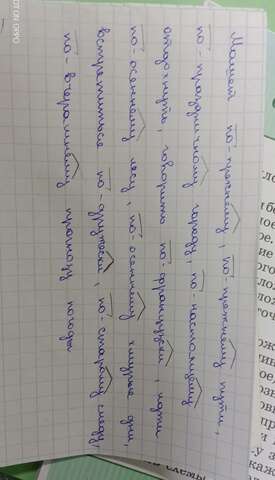 по-прежнему, по-прежнему пути,
по-праздничному городу, по-настоящему
отдохнуть, говорить по-французски, идти
по-осеннему лесу, по-осеннему хмурые дни,
встретиться по-дружески, по-старому следу,
по-вчерашнему прогнозу погоды